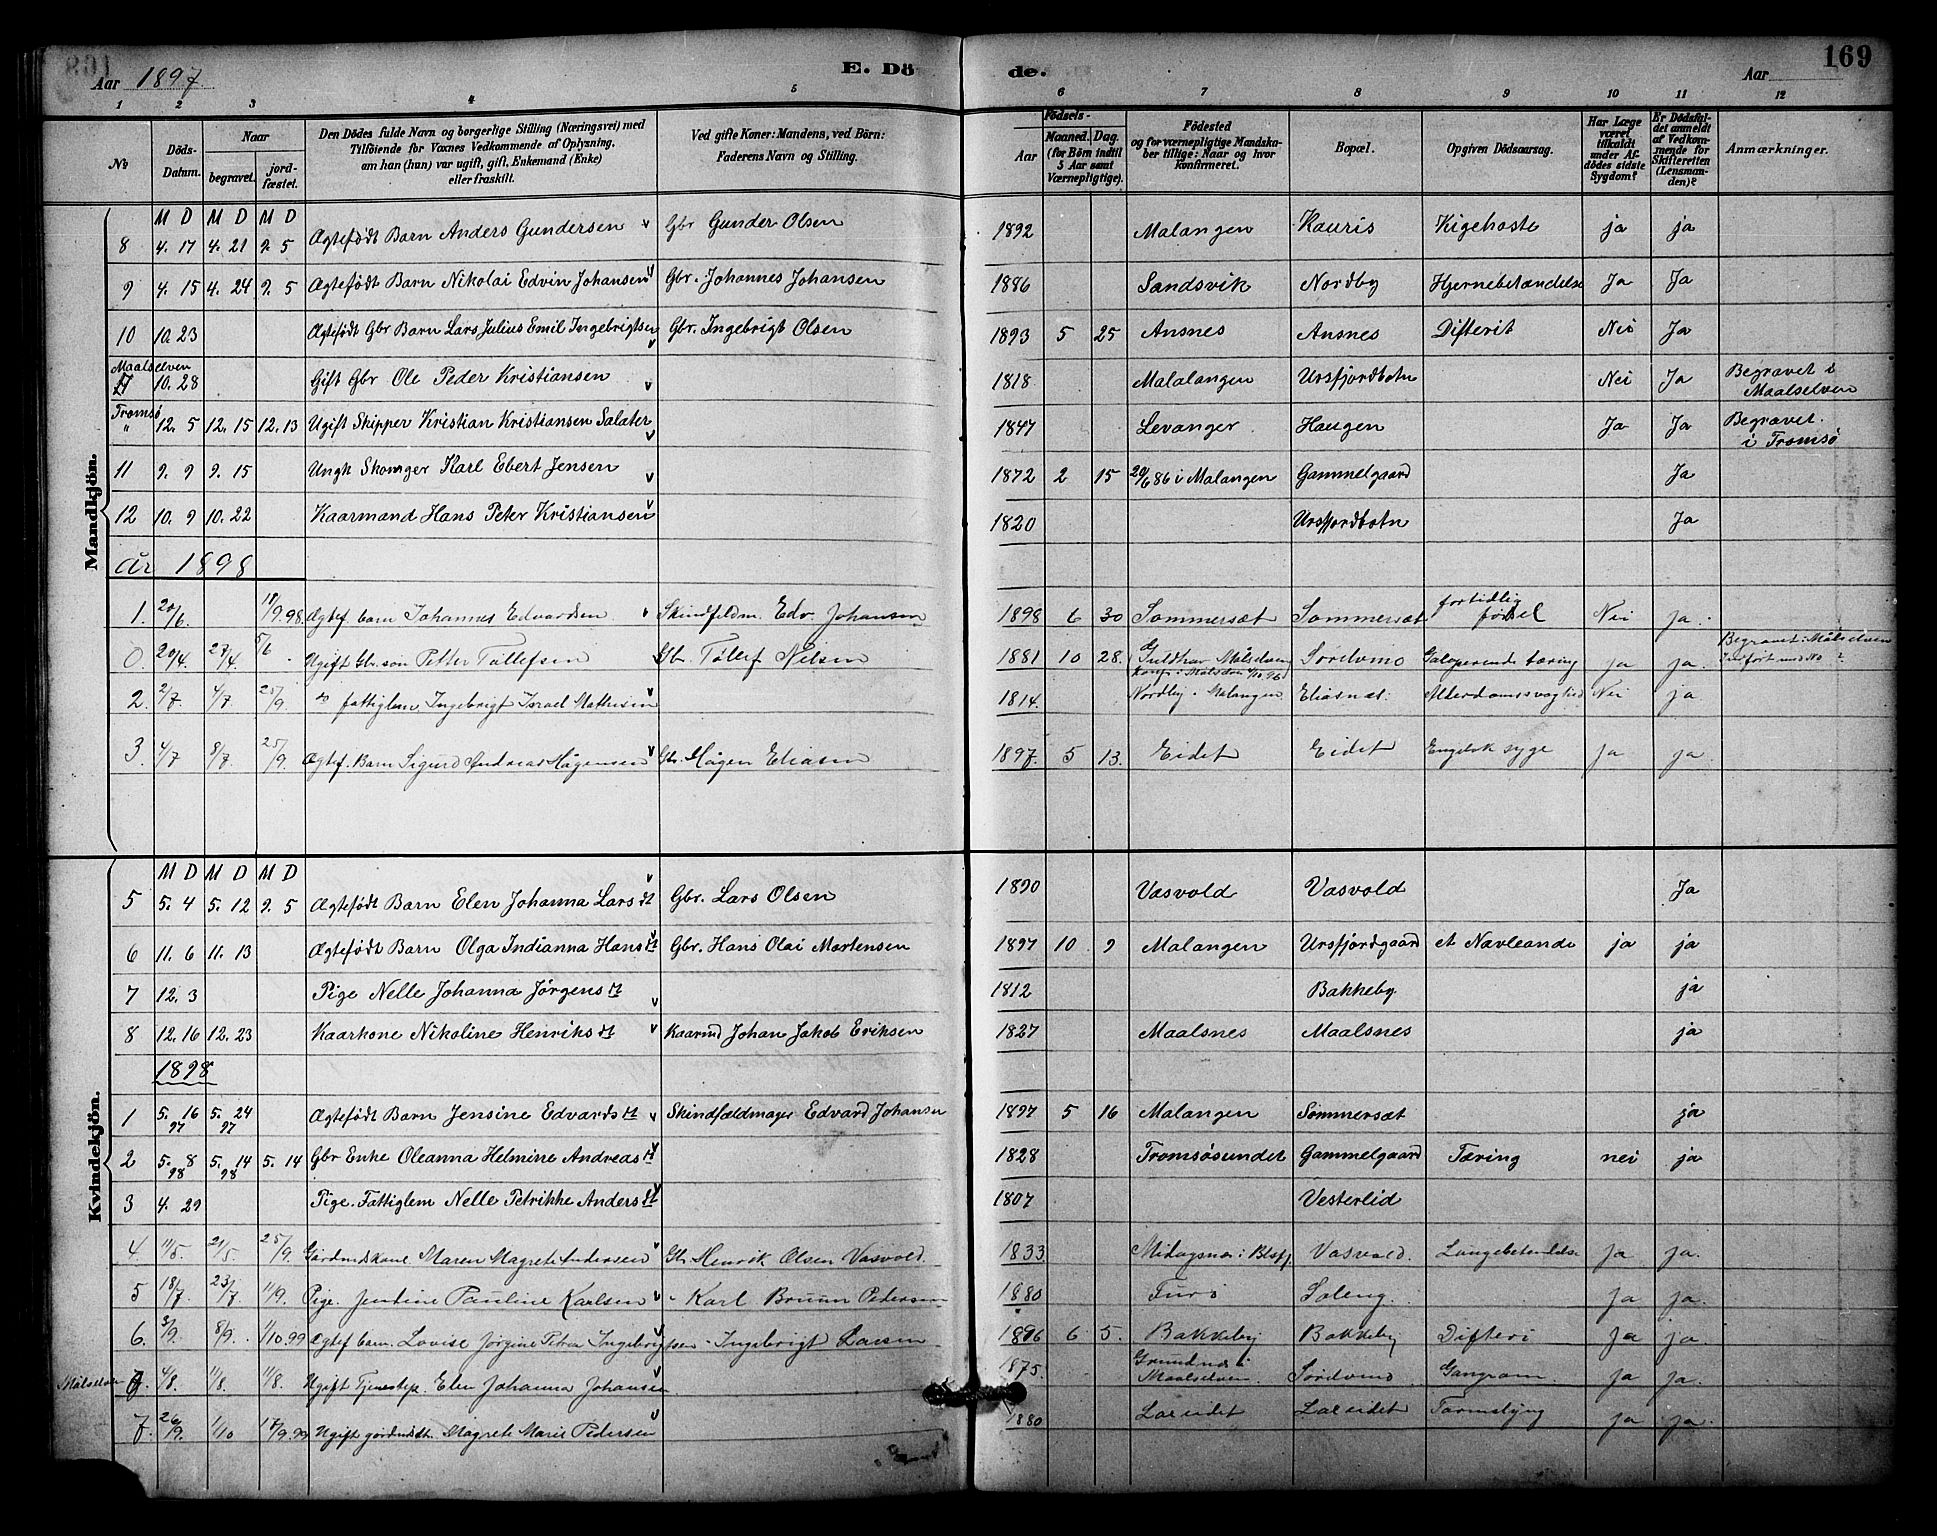 Aar 1897
E. Döde.
Aar
169
1 2 3 4 5 6 7 8 9 10 11 12
No
Döds-Datum.
Naar
begravet.
jord-fæstet.
Den Dödes fulde Navn og borgerlige Stilling (Næringsvei) med
Tilföiende for Voxnes Vedkommende af Oplysning,
om han (hun) var ugift, gift, Enkemand (Enke)
eller fraskilt.
Ved gifte Koner: Mandens, ved Börn:
Faderens Navn og Stilling.
Födsels-
Aar
Maaned. Dag.
(for Börn indtil
5 Aar samt
Værnepligtige).
Födested
og for værnepligtige Mandska-
ber tillige: Naar og hvor
konfirmeret.
Bopæl.
Opgiven Dödsaarsag.
Har Læge
været
tilkaldt
under Af-
dödes sidste
Sygdom?
Er Dödsfal-
det anmeldt
af Vedkom-
mende for
Skifteretten
(Lensman-
den)?
Anmærkninger.
Mandkjön.
M D M D M D
8 4. 17 4. 21 9. 5 Ægtefödt Barn Anders Gundersen v Gbr Gunder Olsen 1892 Malangen Kauris Kigehoste ja ja
9 4. 15 4. 24 9. 5 Ægtefödt Barn Nikolai Edvin Johansen v Gbr. Johannes Johansen 1886 Sandsvik Nordby Hjernebetændelse Ja Ja
10 10. 23 Ægtefödt Gbr Barn Lars Julius Emil Ingebrigtsen v Gbr. Ingebrigt Olsen 1893 5 25 Ansnes Ansnes Difterit Nei Ja
Maalselven 10. 28 Gift Gbr Ole Peder Kristiansen v 1818 Malalangen Ursfjordbotn Nei Ja Begravet i Maalselven
Tromsö " 12. 5 12. 15 12. 13 Ugift Skipper Kristian Kristiansen Salater v 1847 Levanger Haugen Ja Ja Begravet i Tromsö
11 9. 9 9. 15 Ungk Skomger Karl Ebert Jensen v 1872 2 15 20/6 86 i Malangen Gammelgaard Ja
12 10. 9 10. 22 Kaarmand Hans Peter Kristiansen v 1820 Ursfjordbotn Ja
År 1898
1. 20/6 18/9.98. Ægtef barn Johannes Edvardsen v Skindfeldm. Edv Johansen 1898 6 30 Sommersæt Sommersæt fortidlig födsel Nei ja.
0. 20/4. 27/4. 5/6 Ugift Gbr.sön Petter Tollefsen Gb. Tollef Nelsen 1881 10 28. Målselven Konf. i Målselven Sördvino Galoperende tæring ja ja. Begravet i Målselven
2. 2/7 4/7 25/9. fattiglem Ingebrigt Israel Mathisen v 1814. Nordby i Malangen Eliasnæs: Alderdomssvaghed Nei ja
3. 4/7 8/7. 25/9. Ægtef. Barn Sigurd Andreas Hågensen v Gbr. Hågen Eliasen 1897. 5 13. Eidet Eidet Engelsk syge ja ja.
Kvindekjön.
M D M D M D
5 5. 4 5. 12 9. 5 Ægtefödt Barn Elen Johanna Larsdt v Gbr. Lars Olsen 1890 Vasvold Vasvold Ja
6 11. 6 11. 13 Ægtefödt Barn Olga Indianna Hansdt v Gbr. Hans Olai Mortensen 1897 10 9 Malangen Ursfjordgaard et Navleonde ja ja
7 12. 3 Pige Nelle Johanna Jörgensdt v 1812 Bakkeby ja
8 12. 16 12. 23 Kaarkone Nikoline Henriksdt v Kaarmd Johan Jakob Eriksen 1827 Maalsnes Maalsnes ja
1898
1 5. 16 97 5. 24 97 Ægtefödt Barn Jensine Edvardsdt v Skindfældmager Edvard Johansen 1897 5 16 Malangen Sommersæt ja
2 5. 8 98 5. 14 98 5. 14 Gbr Enke Oleanna Helmine Andreasdt v 1828 Tromsösundet Gammelgaard Tæring nei ja
3 4. 29 Pige. Fattiglem Nelle Petrikke Andersdt v 1807 Vesterlid
4. 11/5. 21/5. 25/9. Gårdmdskone Maren Magrete Andersen v Gb. Henrik Olsen Vasvold. 1833. Vasvold. Lungebetændelse Ja ja.
5 18/7 23/7. 11/9. Pige. Jentine Pauline Karlsen v " Karl Bruun Pedersen 1880 Soleng. ja ja.
6. 3/9. 8/9. 1/10.99 Ægtef barn. Lovise Jörgine Petra Ingebrigtsen v Ingebrigt Larsen 1896 6 5. Bakkeby Bakkeby Difteri Ja ja.
Målselven 4/8. 11/8. 11/8. Ugift Tjenestep. Elen Johanna Johansen v 1875. Grundnes i Maalselven. Sördvino Gangræn. ja ja.
7. 26/9. 1/10 17/9.99 Ugift gårdmdsdt. Magrete Marie Pedersen v 1880 Lareidet Lareidet ja ja.